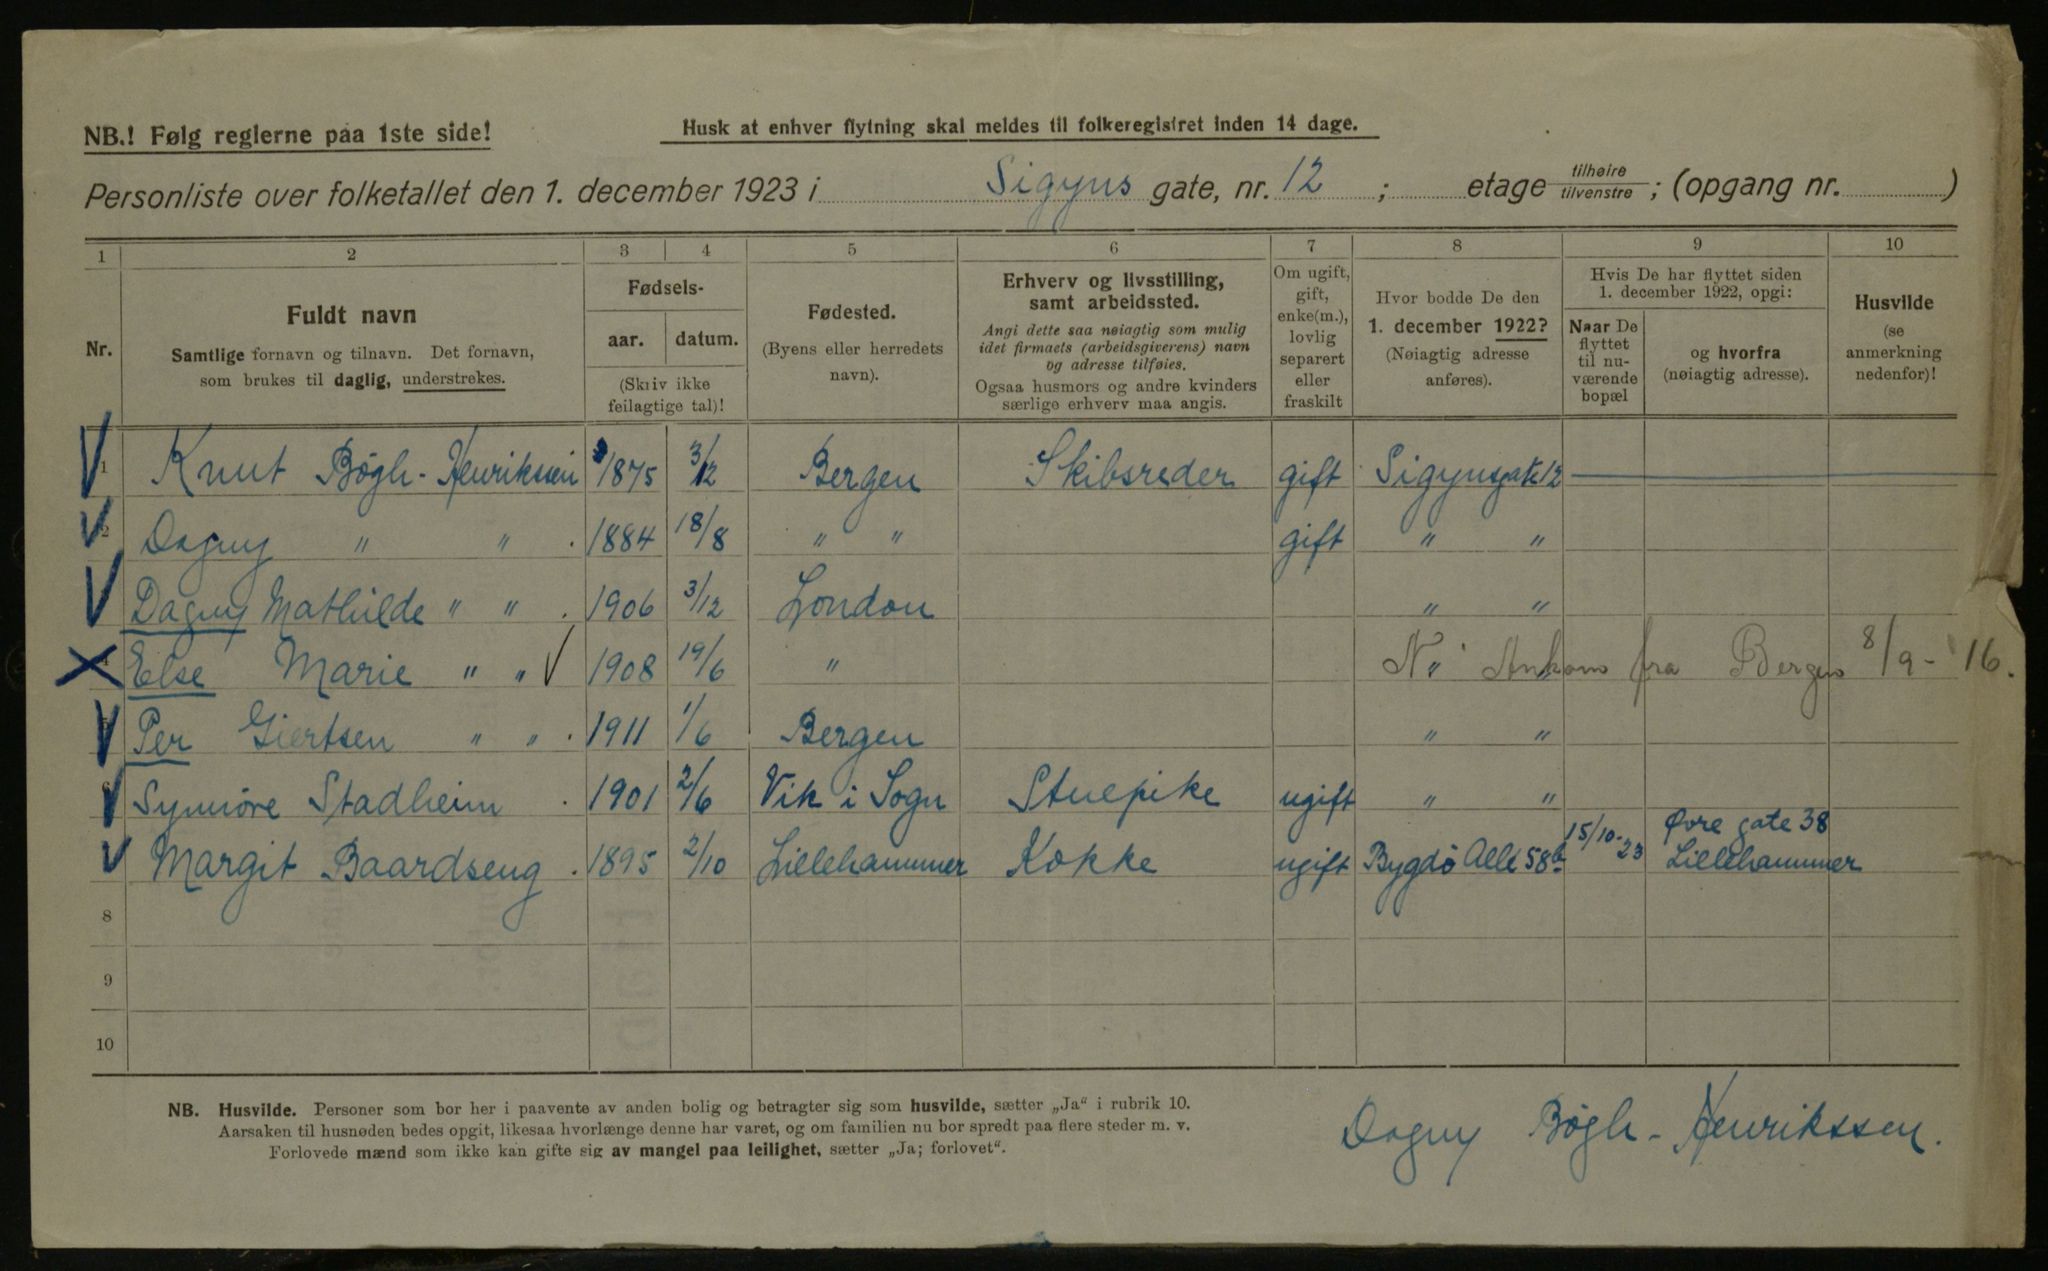 NB.! Følg reglerne paa 1ste side!
Husk at enhver flytning skal meldes til folkeregistret inden 14 dage.
Personliste over folketallet den 1. december 1923 i Sigyns gate, nr. 12 ; etage tilhøire tilvenstre ; (opgang nr. )
1 2 3 4 5 6 7 8 9 10
Nr.
Fuldt navn
Samtlige fornavn og tilnavn. Det fornavn,
som brukes til daglig, understrekes.
Fødsels-
aar. datum.
(Skriv ikke
feilagtige tal)!
Fødested.
(Byens eller herredets
navn).
Erhverv og livsstilling,
samt arbeidssted.
Angi dette saa nøiagtig som mulig
idet firmaets (arbeidsgiverens) navn
og adresse tilføies.
Ogsaa husmors og andre kvinders
særlige erhverv maa angis.
Om ugift,
gift,
enke(m.),
lovlig
separert
eller
fraskilt
Hvor bodde De den
1. december 1922?
(Nøiagtig adresse
anføres).
Hvis De har flyttet siden
1. december 1922, opgi:
Naar De
flyttet
til nu-
værende
bopæl
og hvorfra
(nøiagtig adresse).
Husvilde
(se
anmerkning
nedenfor)!
1 Knut Bøgh-Henrikssen 1875 3/12 Bergen Skibsreder gift Sigynsgate 12
2 Dagny " " . 1884 18/8 " " gift " "
Dagny Mathilde " " . 1906 3/12 London " "
4 Else Marie " " 1908 19/6 " N. " Ankom fra Bergen 8/9 - 16.
5 Per Giertsen " " . 1911 1/6 Bergen " "
6 Synnöre Stadheim . 1901 2/6 Vik i Sogn Stuepike ugift " "
Margit Baardseng . 1895 2/10 Lillehammer Kokke ugift Bygdö Allé 58b 15/10-23 Øvre gate 38
Lillehammer
8
9
10
NB. Husvilde. Personer som bor her i paavente av anden bolig og betragter sig som husvilde, sætter „Ja“ i rubrik 10.
Aarsaken til husnøden bedes opgit, likesaa hvorlænge denne har varet, og om familien nu bor spredt paa flere steder m. v.
Forlovede mænd som ikke kan gifte sig av mangel paa leilighet, sætter „Ja; forlovet“.
Dagny Bøgh-Henrikssen.